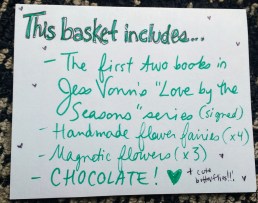 This basket includes...
- The first two books in
Jess Vonn's "Love by the
Seasons" series (signed)
- Handmade flower fairies (x4)
- Magnetic flowers (x3)
- CHOCOLATE! ♥ + cute
butterflies!!!